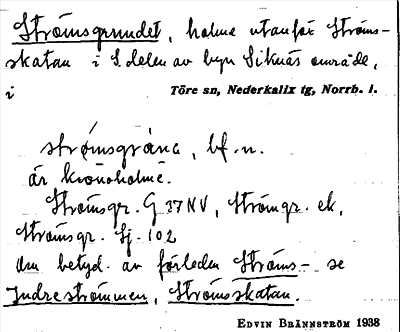 Strömsgrundet, holme utanför Ströms-
skatan i S. delen av byn Siknäs område,
i Töre sn, Nederkalix tg, Norrb. l.
strømsgråna, bf. n.
är kronoholme.
Strömsgr. G 37 NV, Strömgr. ek,
Strömsgr. Sj. 102
Om betyd. av förleden Ströms- se
Indreströmmen, Strömsskatan.
EDVIN BRÄNNSTRÖM 1938